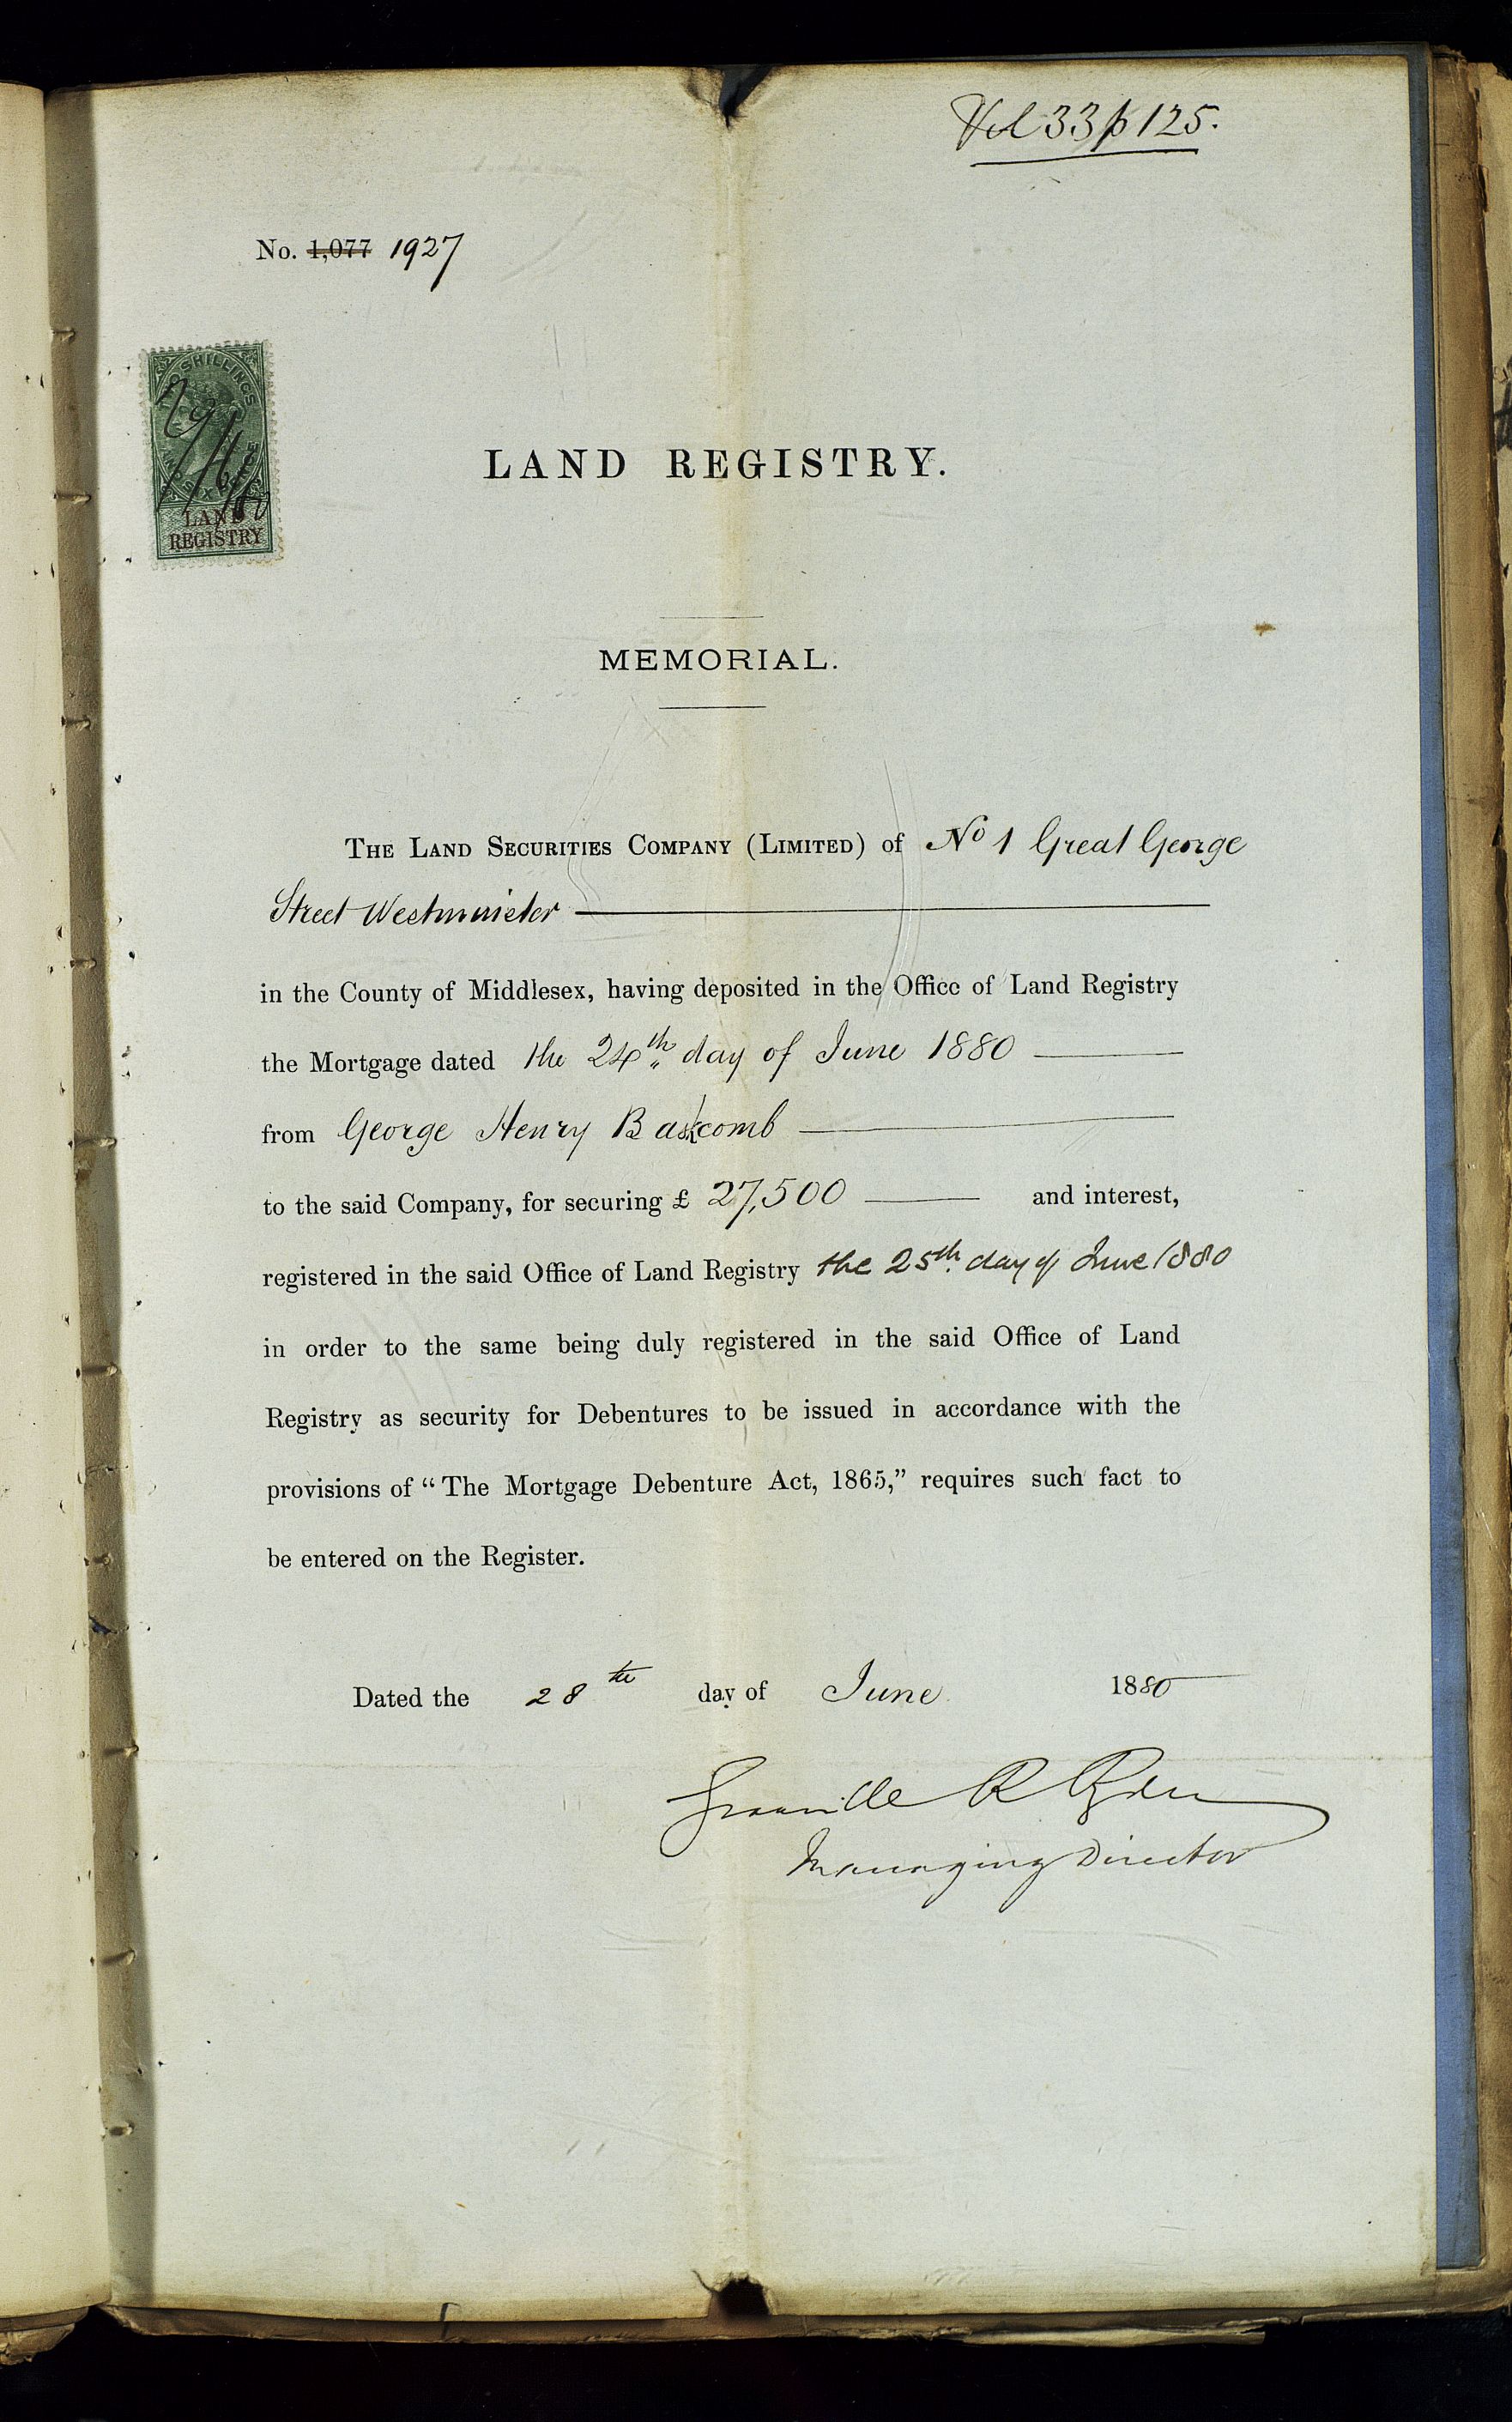 Vol 33 p 125.
No. 1,077 1927
TWO SHILLINGS
AND SIXPENCE
LAND
REGISTRY
29/6/80
LAND REGISTRY.
MEMORIAL.
THE LAND SECURITIES COMPANY (LIMITED) of No 1 Great George
Street Westminster
in the County of Middlesex, having deposited in the Office of Land Registry
the Mortgage dated the 24th day of June 1880
from George Henry Bascomb
to the said Company, for securing £ 27,500 and interest,
registered in the said Office of Land Registry the 25th day of June 1880
in order to the same being duly registered in the said Office of Land
Registry as security for Debentures to be issued in accordance with the
provisions of “The Mortgage Debenture Act, 1865,” requires such fact to
be entered on the Register.
Dated the 28th day of June 1880
Granville R Ryder
Managing Director